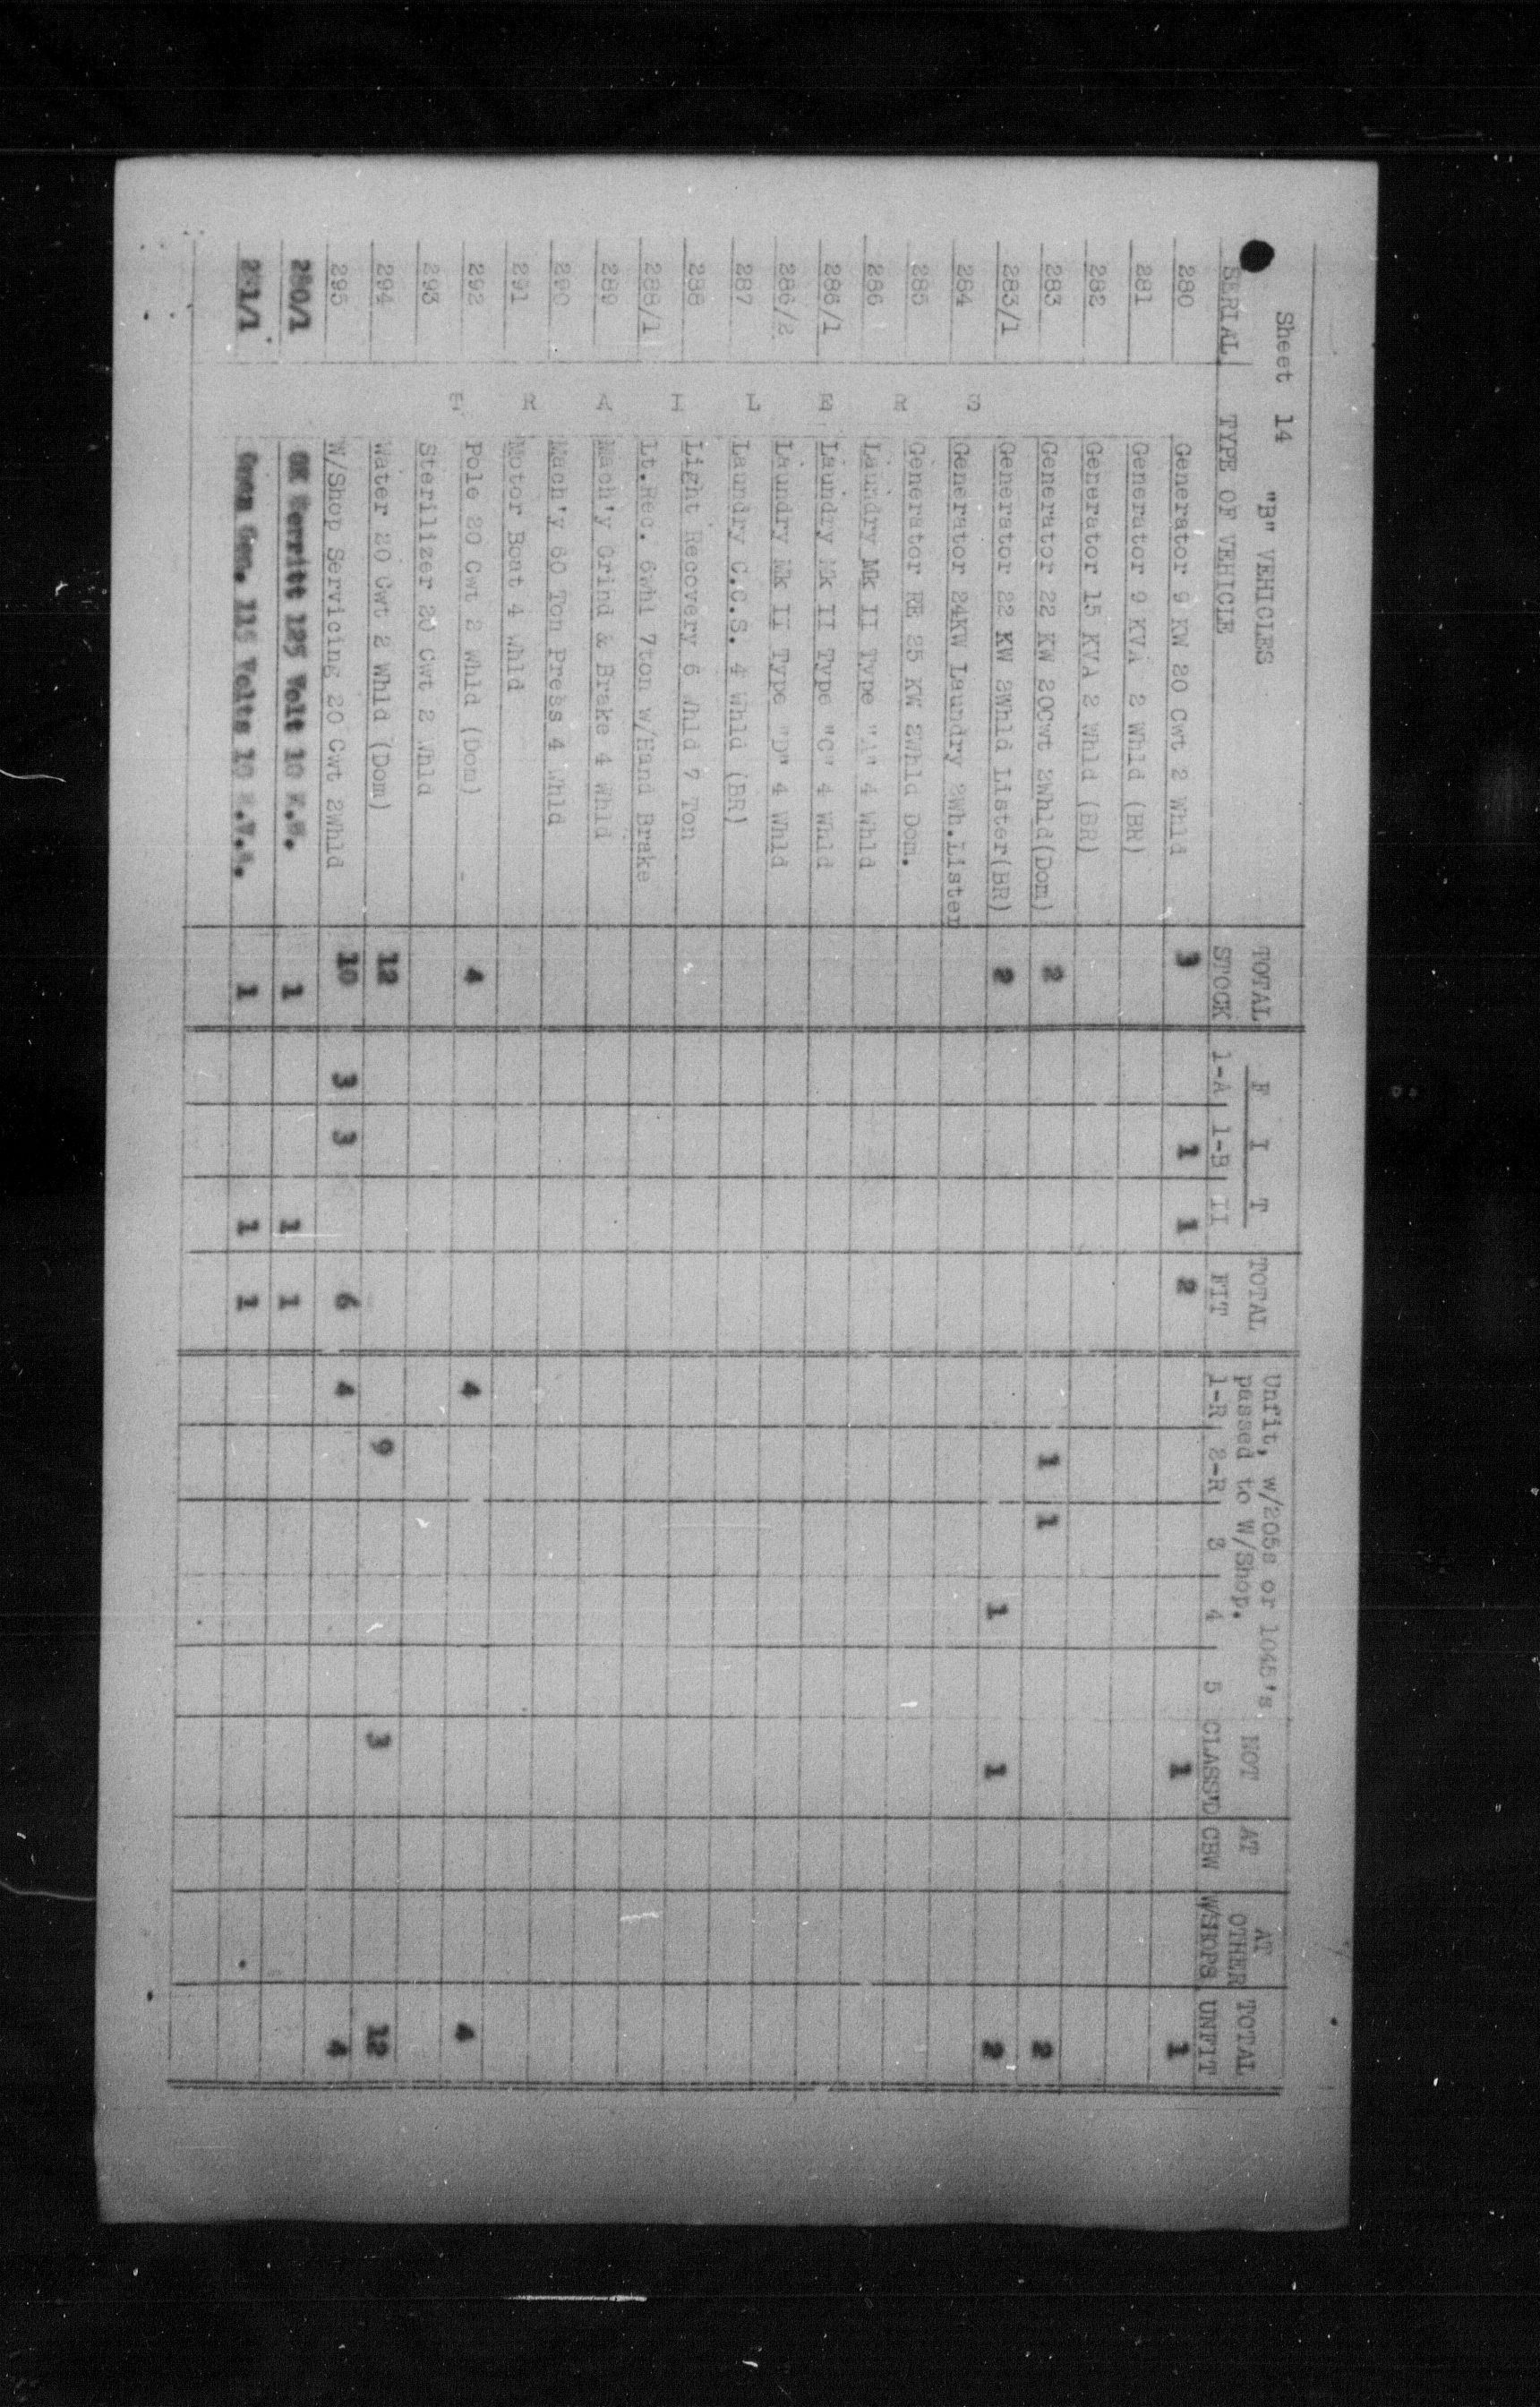 Sheet 14 "B" VEHICLES
SERIAL TYPE OF VEHICLE TOTAL STOCK F I T 1-A 1-B II TOTAL FIT Unfit, w/205s or 1045's passed to W/Shop. 1-R 2-R 3 4 5 NOT CLASS'D AT CBW AT OTHER W/SHOPS TOTAL UNFIT
T R A I L E R S
280 Generator 9 KW 20 Cwt 2 Whld 3 1 1 2 1 1
281 Generator 9 KVA 2 Whld (BR)
282 Generator 15 KVA 2 Whld (BR)
283 Generator 22 KW 20Cwt 2Whld(Dom) 2 1 1 2
283/1 Generator 22 KW 2Whld Lister(BR) 2 1 1 2
284 Generator 24KW Laundry 2Wh.Lister
285 Generator RE 25 KW 2Whld Dom.
286 Laundry Mk II Type "A" 4 Whld
286/1 Laundry Mk II Type "C" 4 Whld
286/2 Laundry Mk II Type "D" 4 Whld
287 Laundry C.C.S. 4 Whld (BR)
288 Light Recovery 6 Whld 7 Ton
288/1 Lt.Rec. 6whl 7ton w/Hand Brake
289 Mach'y Grind & Brake 4 Whld
290 Mach'y 60 Ton Press 4 Whld
291 Motor Boat 4 Whld
292 Pole 20 Cwt 2 Whld (Dom) 4 4 4
293 Sterilizer 20 Cwt 2 Whld
294 Water 20 Cwt 2 Whld (Dom) 12 9 3 12
295 W/Shop Servicing 20 Cwt 2Whld 10 3 3 6 4 4
280/1 125 Volt 10 K.W. 1 1 1
281/1 Gen. 115 Volts 10 K.V.A. 1 1 1